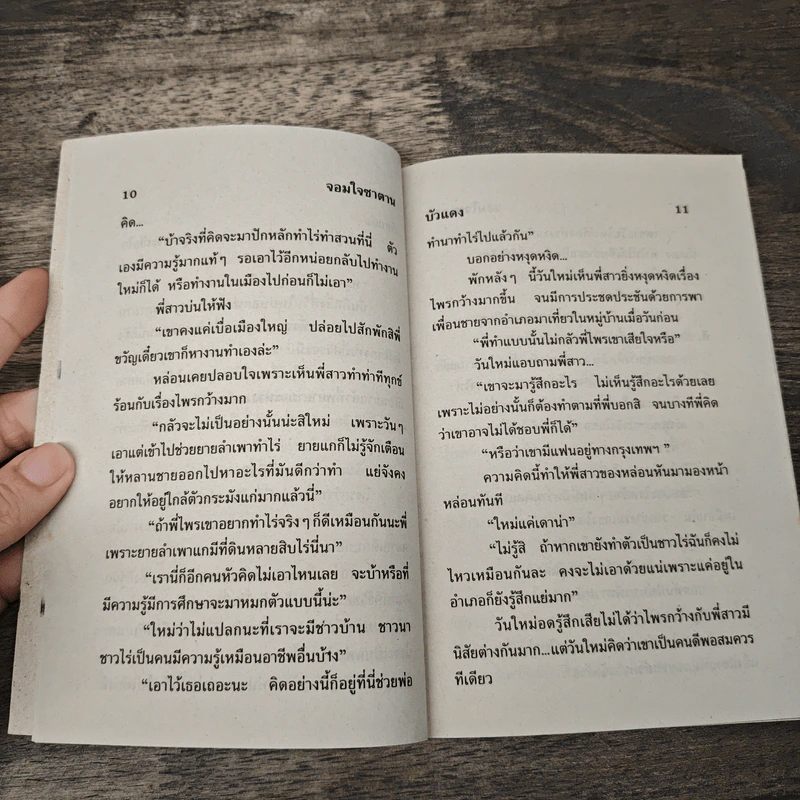 10
จอมใจซาตาน
คิด...
“บ้าจริงที่คิดจะมาปักหลักทำไร่ทำสวนที่นี่ ตัว
เองมีความรู้มากแท้ๆ รอเอาไว้อีกหน่อยกลับไปทำงาน
ใหม่ก็ได้ หรือทำงานในเมืองไปก่อนก็ไม่เอา”
พี่สาวบ่นให้ฟัง
“เขาคงแค่เบื่อเมืองใหญ่ ปล่อยไปสักพักสิพี่
ขวัญเดี๋ยวเขาก็หางานทำเองล่ะ”
หล่อนเคยปลอบใจเพราะเห็นพี่สาวทำท่าทีทุกข์
ร้อนกับเรื่องไพรกว้างมาก
“กลัวจะไม่เป็นอย่างนั้นน่ะสิใหม่ เพราะวันๆ
เอาแต่เข้าไปช่วยยายลำเพาทำไร่ ยายแกก็ไม่รู้จักเตือน
ให้หลานชายออกไปหาอะไรที่มันดีกว่าทำ แย่จังคง
อยากให้อยู่ใกล้ตัวกระมังแก่มากแล้วนี่”
“ถ้าพี่ไพรเขาอยากทำไร่จริงๆ ก็ดีเหมือนกันนะพี่
เพราะยายลำเพาแกมีที่ดินหลายสิบไร่นี่นา”
“เรานี่ก็อีกคนหัวคิดไม่เอาไหนเลย จะบ้าหรือที่
มีความรู้มีการศึกษาจะมาหมกตัวแบบนี้น่ะ”
“ใหม่ว่าไม่แปลกนะที่เราจะมีชาวบ้าน ชาวนา
ชาวไร่เป็นคนมีความรู้เหมือนอาชีพอื่นบ้าง”
“เอาไว้เธอเถอะนะ คิดอย่างนี้ก็อยู่ที่นี่ช่วยพ่อ
บัวแดง
11
ทำนาทำไร่ไปแล้วกัน”
บอกอย่างหงุดหงิด...
พักหลังๆ นี้วันใหม่เห็นพี่สาวยิ่งหงุดหงิดเรื่อง
ไพรกว้างมากขึ้น จนมีการประชดประชันด้วยการพา
เพื่อนชายจากอำเภอมาเที่ยวในหมู่บ้านเมื่อวันก่อน
“พี่ทำแบบนั้นไม่กลัวพี่ไพรเขาเสียใจหรือ”
วันใหม่แอบถามพี่สาว...
“เขาจะมารู้สึกอะไร ไม่เห็นรู้สึกอะไรด้วยเลย
เพราะไม่อย่างนั้นก็ต้องทำตามที่พี่บอกสิ จนบางทีพี่คิด
ว่าเขาอาจไม่ได้ชอบพี่ก็ได้”
“หรือว่าเขามีแฟนอยู่ทางกรุงเทพฯ ”
ความคิดนี้ทำให้พี่สาวของหล่อนหันมามองหน้า
หล่อนทันที
“ใหม่แค่เดาน่า”
“ไม่รู้สิ ถ้าหากเขายังทำตัวเป็นชาวไร่ฉันก็คงไม่
ไหวเหมือนกันละ คงจะไม่เอาด้วยแน่เพราะแค่อยู่ใน
อำเภอก็ยังรู้สึกแย่มาก”
วันใหม่อดรู้สึกเสียไม่ได้ว่าไพรกว้างกับพี่สาวมี
นิสัยต่างกันมาก...แต่วันใหม่คิดว่าเขาเป็นคนดีพอสมควร
ทีเดียว